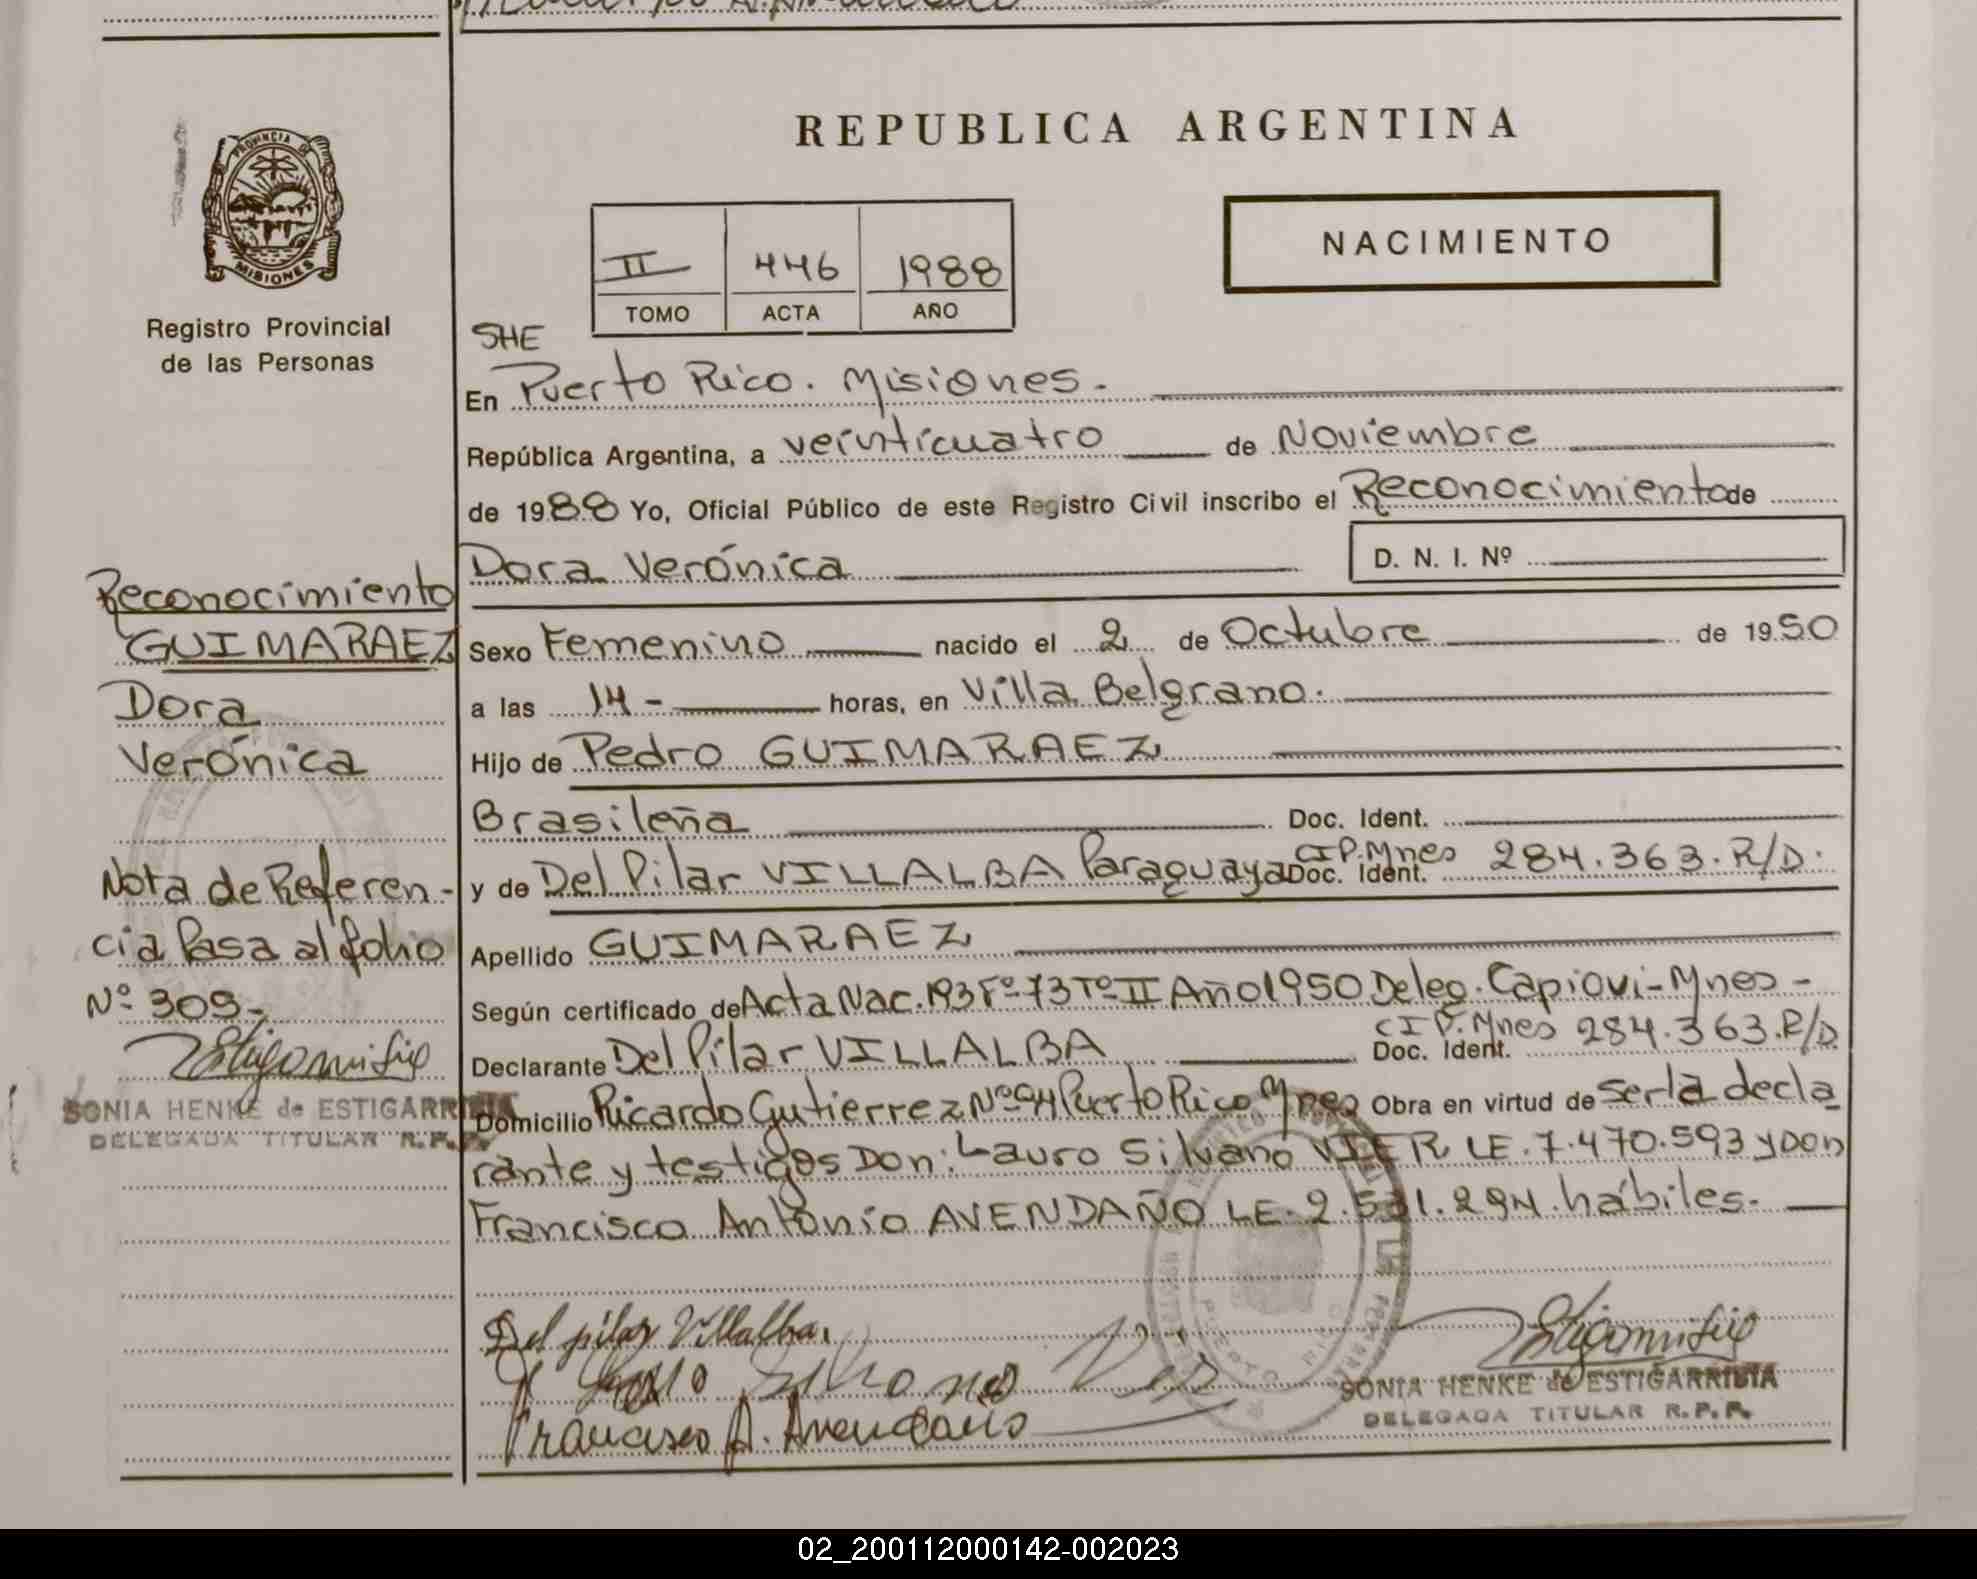 REPUBLICA ARGENTINA
PROVINCIA DE
MISIONES
Registro Provincial
de las Personas
II 446 1988
TOMO ACTA AÑO
NACIMIENTO
SHE
En Puerto Rico. Misiones.
República Argentina, a veinticuatro de Noviembre
de 1988 Yo, Oficial Público de este Registro Civil inscribo el Reconocimiento de
Dora Verónica D. N. I. Nº
Sexo Femenino nacido el 2 de Octubre de 1950
a las 14- horas, en Villa Belgrano.
Hijo de Pedro GUIMARAEZ
Brasileña Doc. Ident.
y de Del Pilar VILLALBA Paraguaya Doc. Ident. CIP.Mnes 284.363.R/D.
Apellido GUIMARAEZ
Según certificado de Acta Nac. 193 Fº 73 Tº II Año 1950 Deleg. Capiovi-Mnes-
Declarante Del Pilar VILLALBA Doc. Ident. CI P.Mnes 284.363.R/D.
Domicilio Ricardo Gutierrez Nº 94 Puerto Rico Mnes Obra en virtud de ser la decla
rante y testigos Don: Lauro Silvano VIER LE. 7.470.593 y Don
Francisco Antonio AVENDAÑO LE. 2.531.294. hábiles.
Del pilar Villalba.
Francisco A. Avendaño
SONIA HENKE de ESTIGARRIBIA
DELEGADA TITULAR R.P.P.
Reconocimiento
GUIMARAEZ
Dora
Verónica
Nota de Referen-
cia Pasa al folio
Nº 309-
SONIA HENKE de ESTIGARRIBIA
DELEGADA TITULAR R.P.P.
02_200112000142-002023